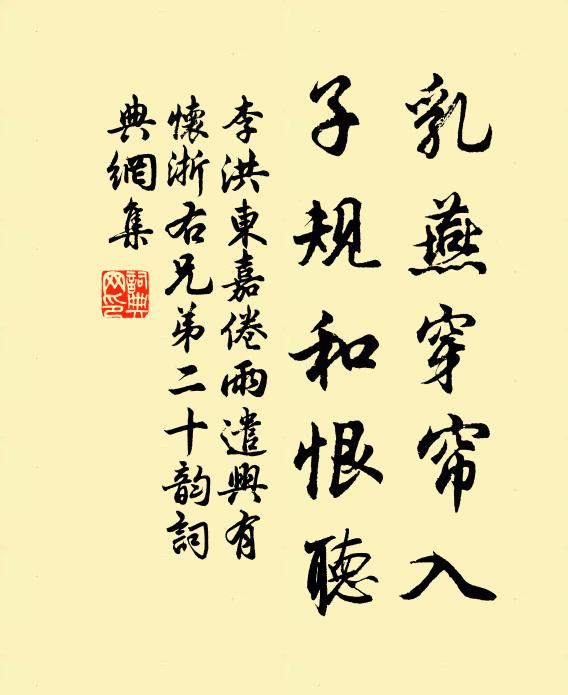 乳燕穿帘入
子规和恨聽
李洪東嘉倦雨遣興有
懷浙右兄弟二十韵詞
典網集
詞典
网印